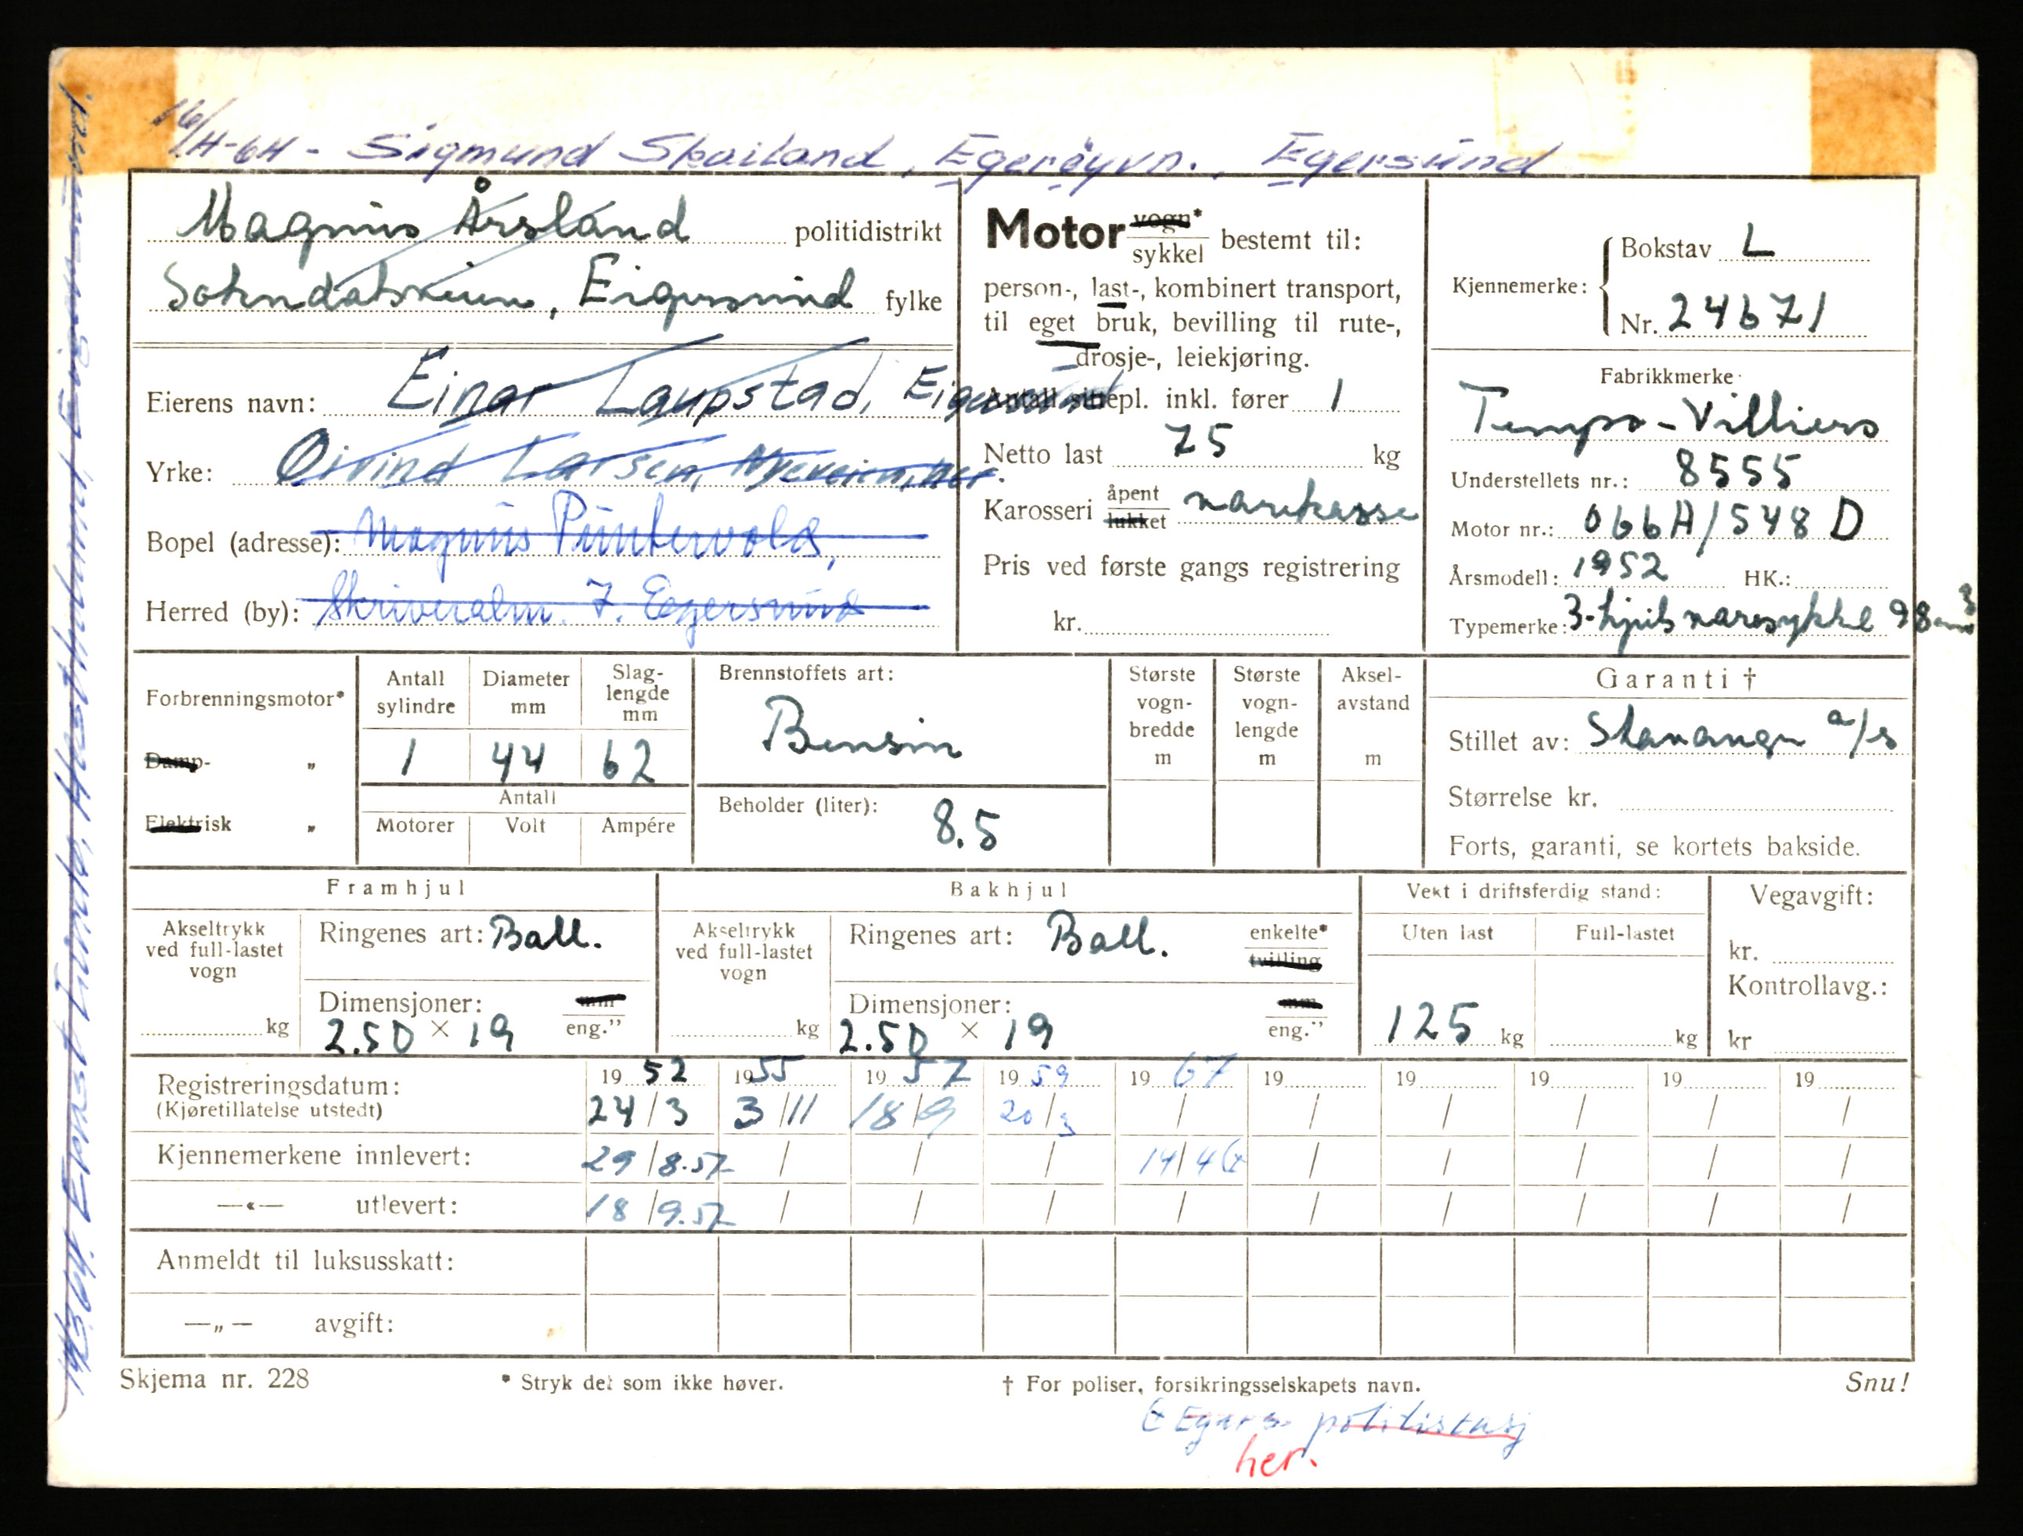 16/4-64 - Sigmund Skailand, Egerøyvn., Egersund
Magnus Årsland politidistrikt
Sokndalsveien, Eigersund fylke
Eierens navn: Einar Laupstad, Eigersund
Yrke: Øivind Larsen, Nyeveien, her.
Bopel (adresse): Magnus Puntervold,
Herred (by): Skriveralm. 7. Egersund
Motor vogn* sykkel bestemt til:
person-, last-, kombinert transport,
til eget bruk, bevilling til rute-,
drosje-, leiekjøring.
Antall sittepl. inkl. fører 1
Netto last 75 kg
Karosseri åpent lukket varekasse
Pris ved første gangs registrering
kr.
Kjennemerke: Bokstav L
Nr. 24671
Fabrikkmerke
Tempo-Villiers
Understellets nr.: 8555
Motor nr.: 066A/548 D
Årsmodell: 1952 HK.:
Typemerke: 3-hjuls varesykkel 98 cm³
Forbrenningsmotor*
Damp- „
Elektrisk „
Antall sylindre Diameter mm Slag-lengde mm
1 44 62
Antall
Motorer Volt Ampére
Brennstoffets art:
Bensin
Beholder (liter): 8.5
Største vogn-bredde m Største vogn-lengde m Aksel-avstand m
Garanti †
Stillet av: Stavanger a/s
Størrelse kr.
Forts, garanti, se kortets bakside.
Framhjul
Akseltrykk ved full-lastet vogn
kg
Ringenes art: Ball.
Dimensjoner: mm eng.”
2.50 × 19
Bakhjul
Akseltrykk ved full-lastet vogn
kg
Ringenes art: Ball. enkelte* tvilling
Dimensjoner: mm eng.”
2.50 × 19
Vekt i driftsferdig stand:
Uten last Full-lastet
125 kg kg
Vegavgift:
kr.
Kontrollavg.:
kr
Registreringsdatum: 19 52 19 55 19 57 19 59 19 67 19 19 19 19 19
(Kjøretillatelse utstedt) 24/3 3/11 18/9 20/3 / / / / / /
Kjennemerkene innlevert: 29/8.57 / / / 14/4 / / / / /
—«— utlevert: 18/9.57 / / / / / / / / /
Anmeldt til luksusskatt:
—„— avgift:
Skjema nr. 228 * Stryk det som ikke høver. † For poliser, forsikringsselskapets navn. Snu!
Egers. politistasj
her.